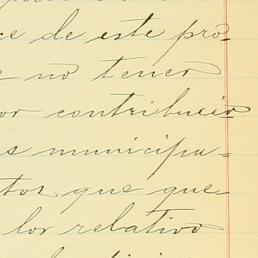 ce de este pro-
no tener
or contribucio
s municipa-
tos que que-
lo relativo